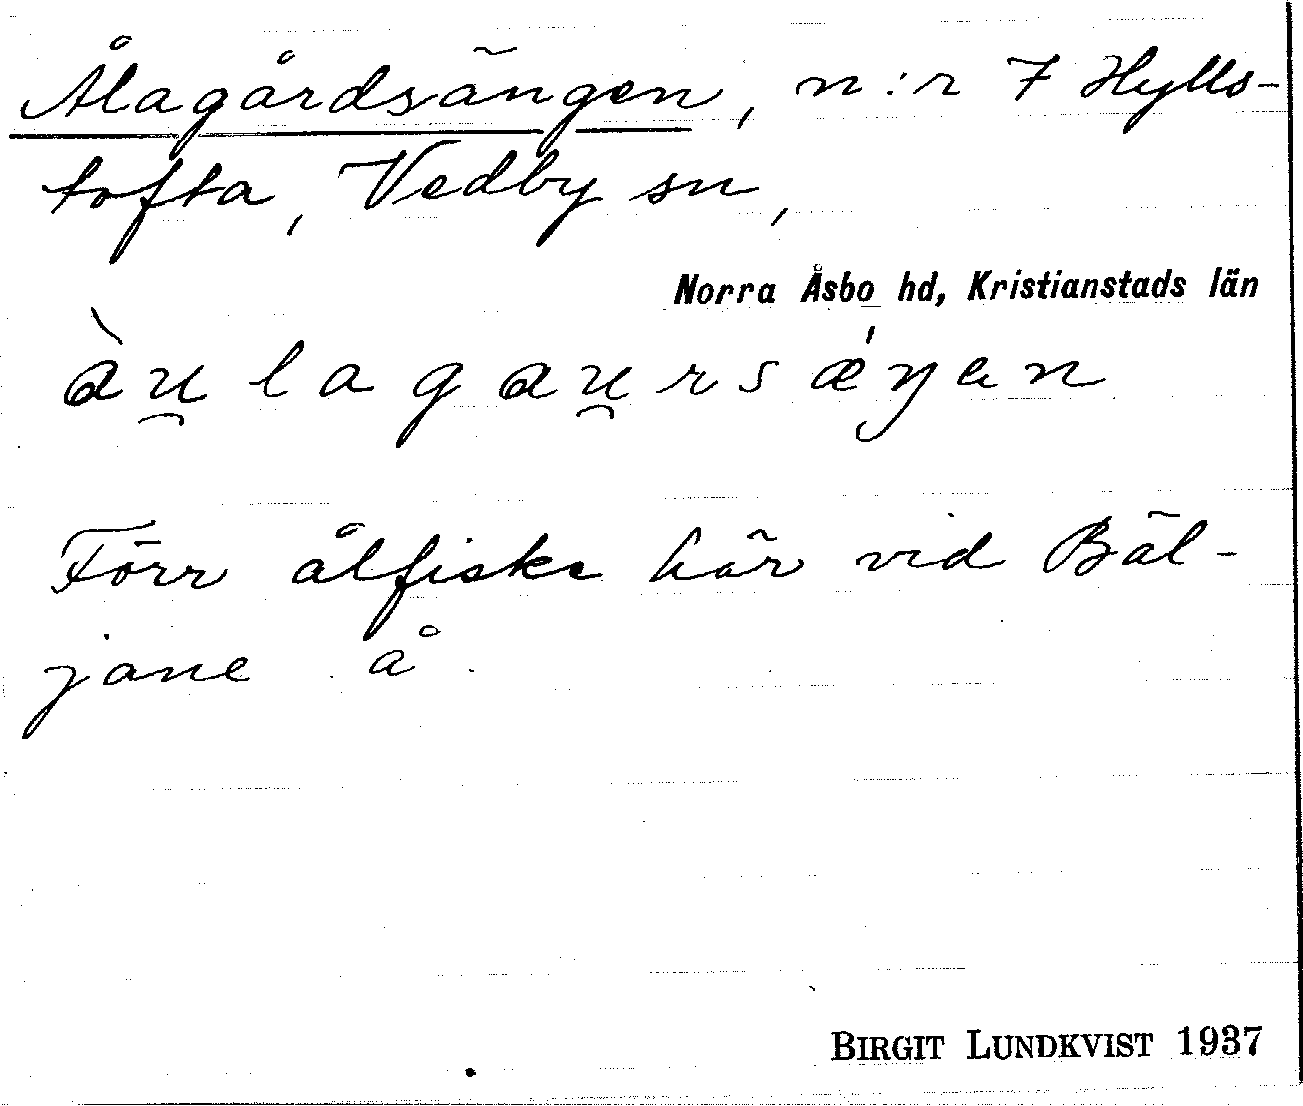 Ålagårdsängen, n:r 7 Hylls-
tofta, Vedby sn,
Norra Åsbo hd, Kristianstads län
àu̯lagau̯rsǽŋen
Förr ålfiske här vid Bäl-
jane å.
BIRGIT LUNDKVIST 1937